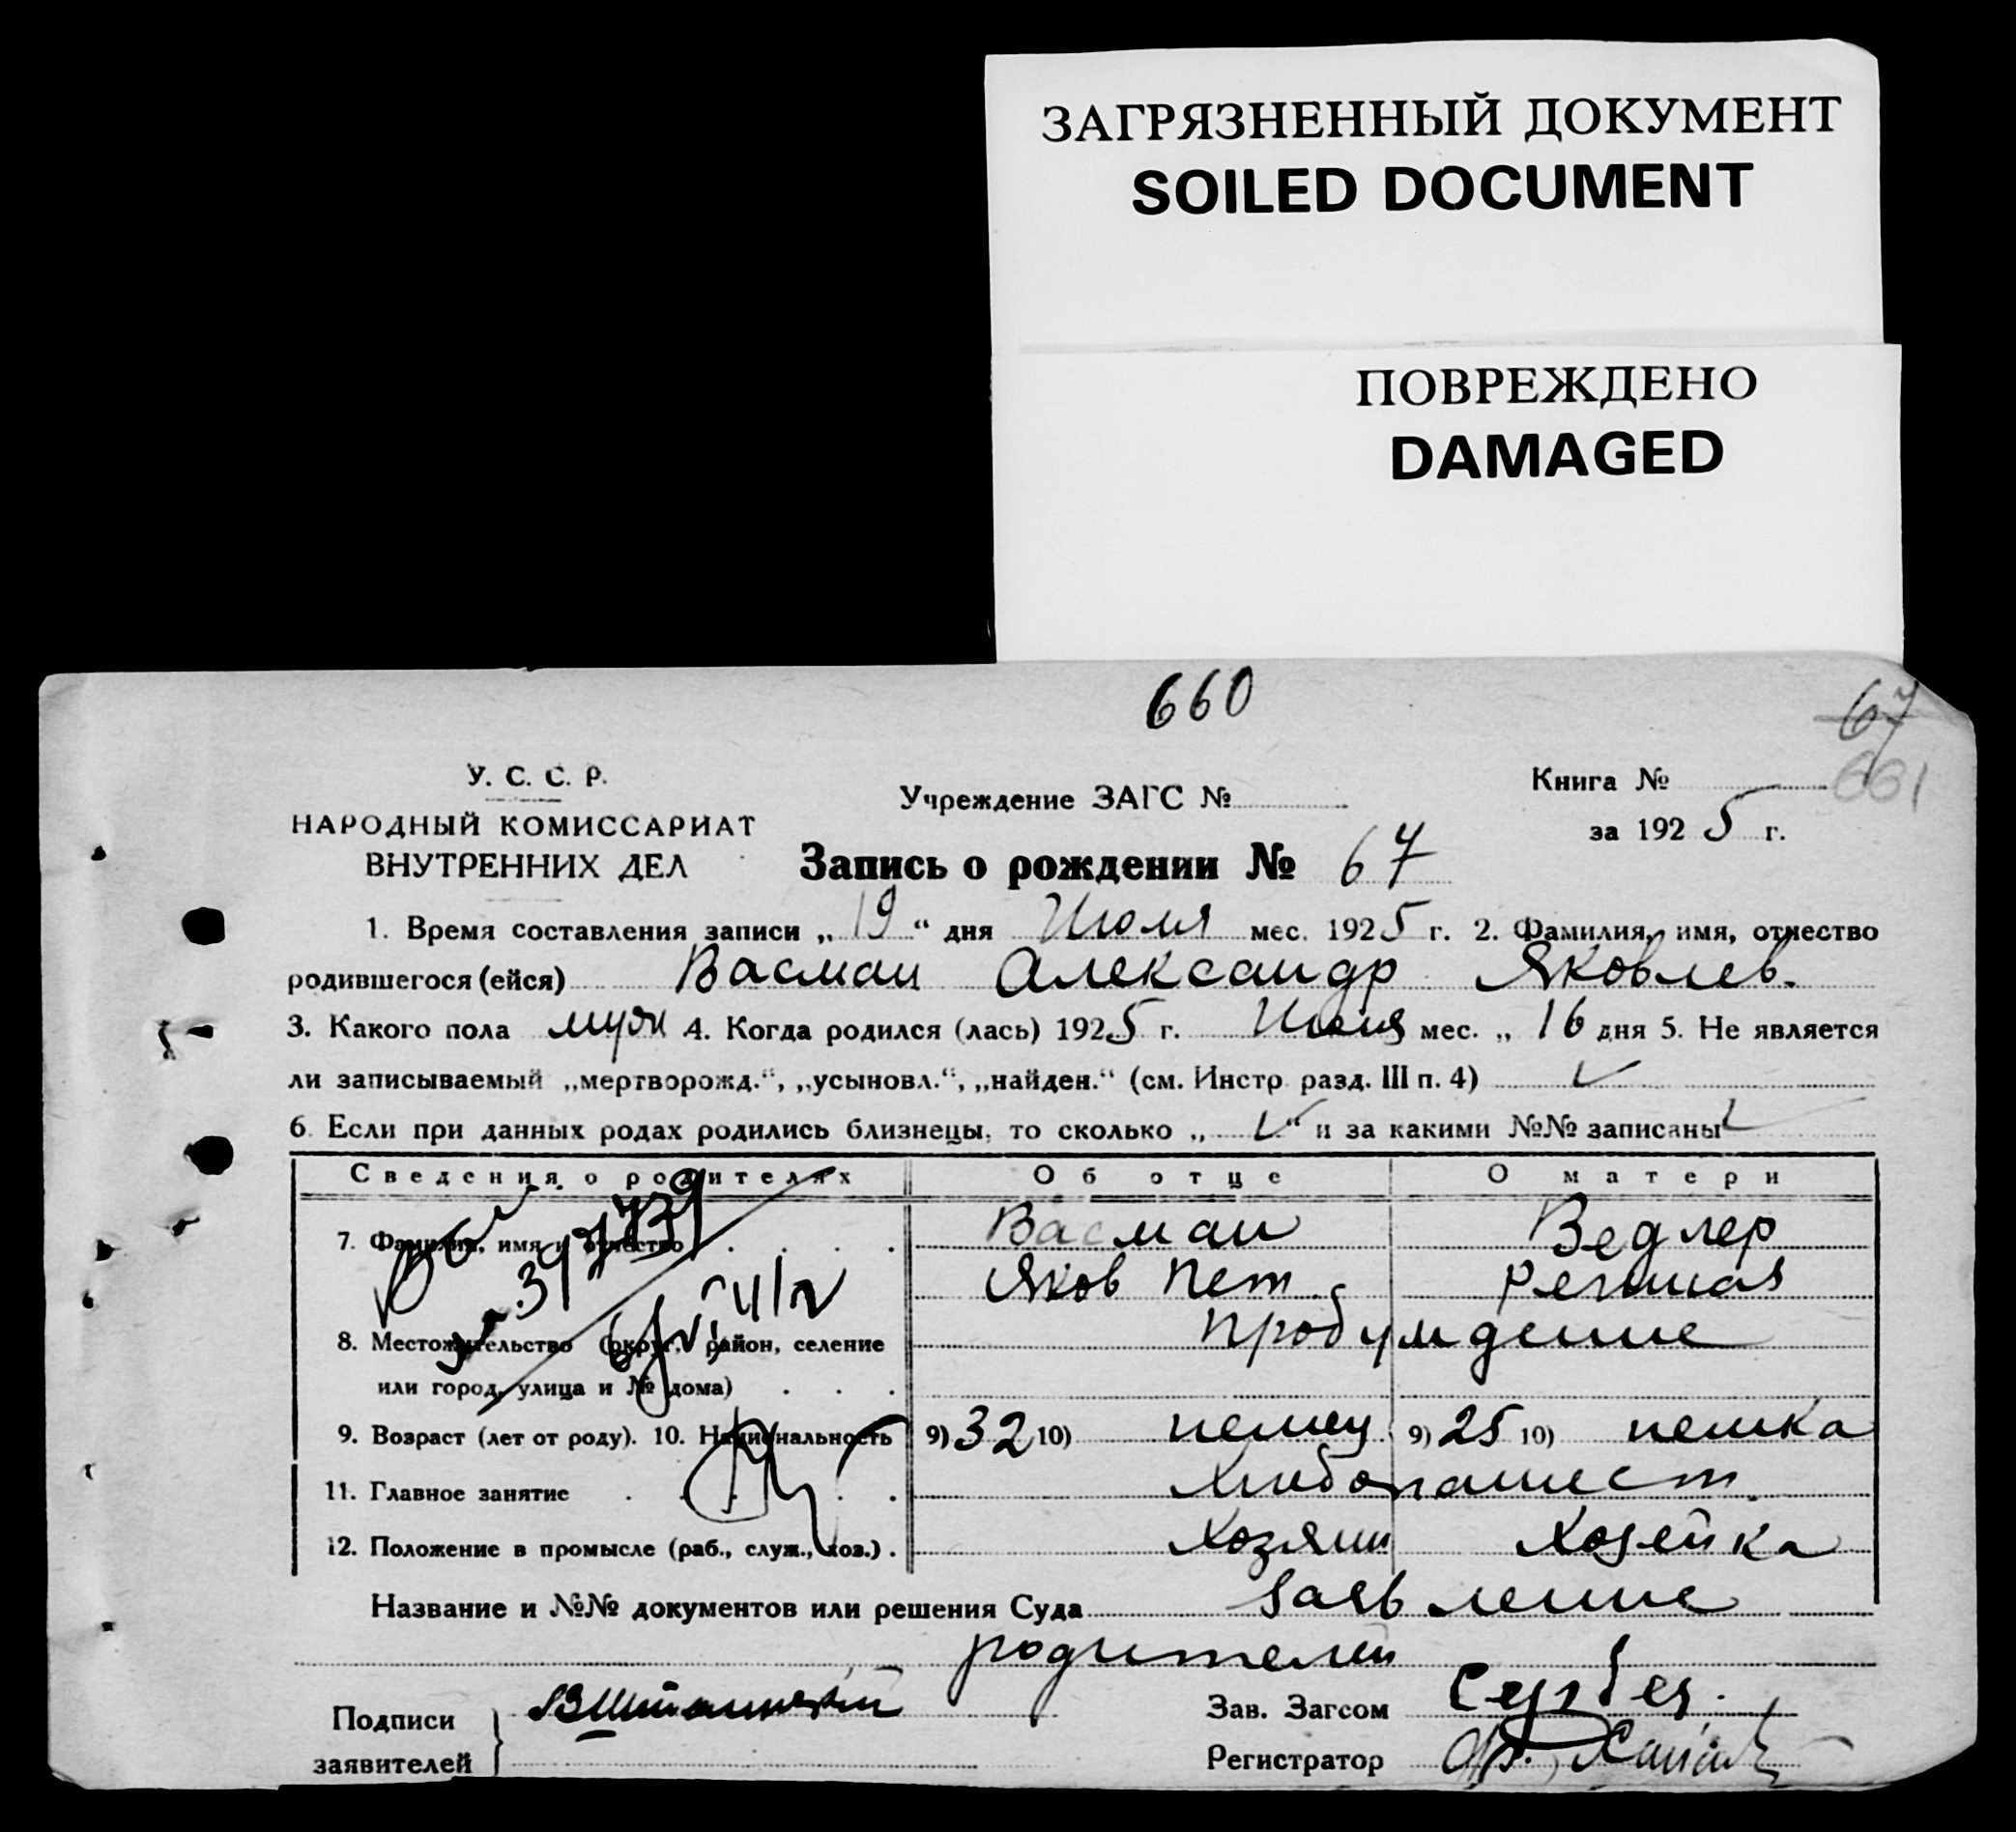 ЗАГРЯЗНЕННЫЙ ДОКУМЕНТ
SOILED DOCUMENT
ПОВРЕЖДЕНО
DAMAGED
660
67
661
У. С. С. Р.
НАРОДНЫЙ КОМИССАРИАТ
ВНУТРЕННИХ ДЕЛ
Учреждение ЗАГС №
Книга №
за 1925 г.
Запись о рождении № 67
1. Время составления записи „19“ дня Июля мес. 1925 г. 2. Фамилия, имя, отчество
родившегося (ейся) Васман Александр Яковлев.
3. Какого пола муж 4. Когда родился (лась) 1925 г. Июля мес. „ 16 дня 5. Не является
ли записываемый „мертворожд.“, „усыновл.“, „найден.“ (см. Инстр. разд. III п. 4)
6. Если при данных родах родились близнецы, то сколько „ “ и за какими №№ записаны
Сведения о родителях Об отце О матери
7. Фамилия, имя и отчество Васман Ведлер
Яков Пет.
8. Местожительство (округ, район, селение Пробуждение
или город, улица и № дома)
9. Возраст (лет от роду). 10. Национальность 9) 32 10) немец 9) 25 10) немка
11. Главное занятие Хлебопашест.
12. Положение в промысле (раб., служ., хоз.) Хозяин Хозейка
Название и №№ документов или решения Суда Заявление
родителей
Подписи
заявителей
Зав. Загсом
Регистратор